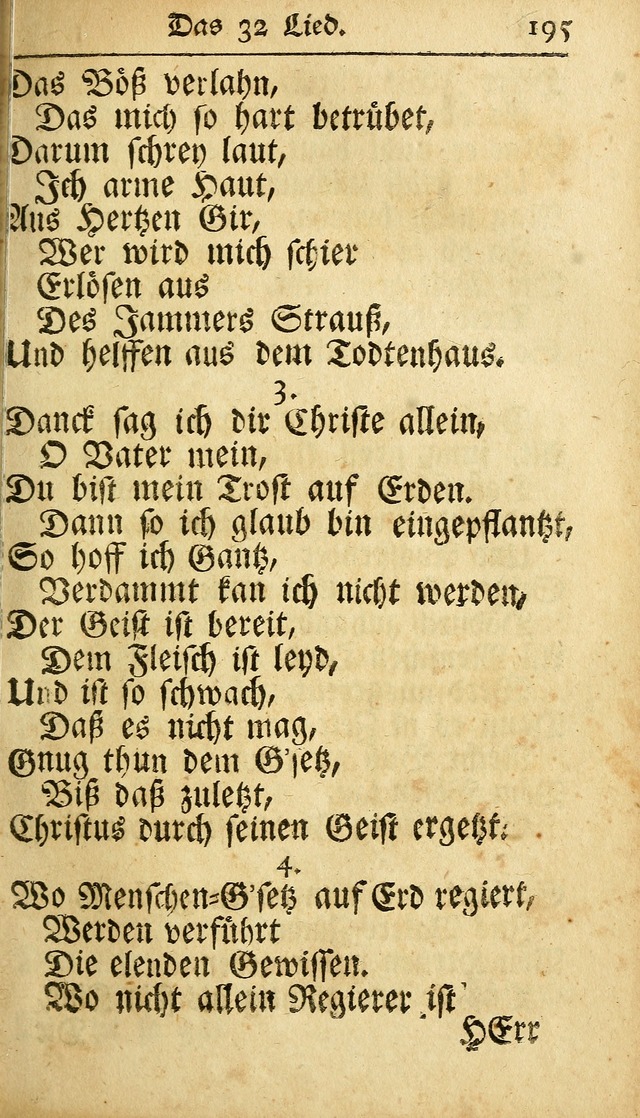 Das 32 Lied. 195
Das Böß verlahn,
Das mich so hart betrübet,
Darum schrey laut,
Ich arme Haut,
Aus Hertzen Gir,
Wer wird mich schier
Erlösen aus
Des Jammers Strauß,
Und helffen aus dem Todtenhaus.
3.
Danck sag ich dir Christe allein,
O Vater mein,
Du bist mein Trost auf Erden.
Dann so ich glaub bin eingepflantzt,
So hoff ich Gantz,
Verdammt kan ich nicht werden,
Der Geist ist bereit,
Dem Fleisch ist leyd,
Und ist so schwach,
Daß es nicht mag,
Gnug thun dem G'setz,
Biß daß zuletzt,
Christus durch seinen Geist ergetzt.
4.
Wo Menschen-G'setz auf Erd regiert,
Werden verführt
Die elenden Gewissen.
Wo nicht allein Regierer ist
HErr